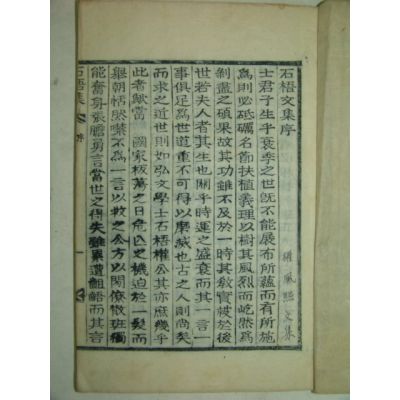 權鳳熙文集
石梧文集序
士君子生乎衰季之世旣不能展布所蘊而有所施
爲則必砥礪名節扶植義理以樹其風烈而屹然爲
剝盡之碩果故其功雖不及於一時其敎實被於後
世若夫人者其生也關乎時運之盛衰而其一言一
事俱足爲世道重不可得以磨滅也古之人則尚矣
而求之近世則如弘文學士石梧權公其亦庶幾乎
此者歟當 國家板蕩之日危亡之機迫於一髮而
擧朝恬然噤不爲一言以救之公方以閒僚散班獨
能奮身張膽勇言當世之得失雖累遭齟齬而其言
石梧集 序 一